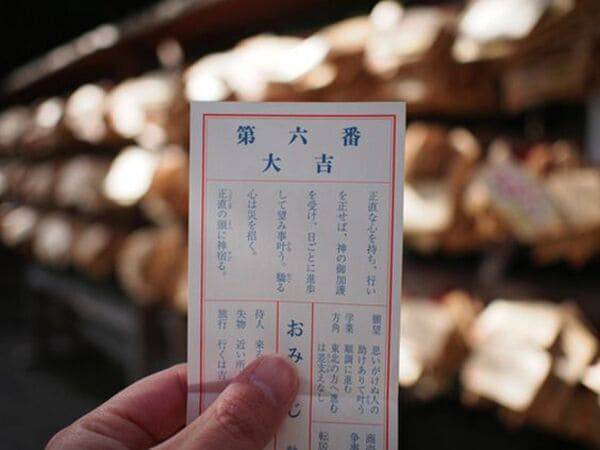 第六番
大吉
正直な心を持ち、行い
を正せば、神の御加護
を受け、日ごとに進歩
して望み事叶う。驕る
心は災を招く。
正直の頭に神宿る。
願望 思いがけぬ人の
助けありて叶う
学業 順調に進む
方角 東北の方へ進む
は差支えなし
おみ
じ
待人 来る
失物 近い所
旅行 行くは吉